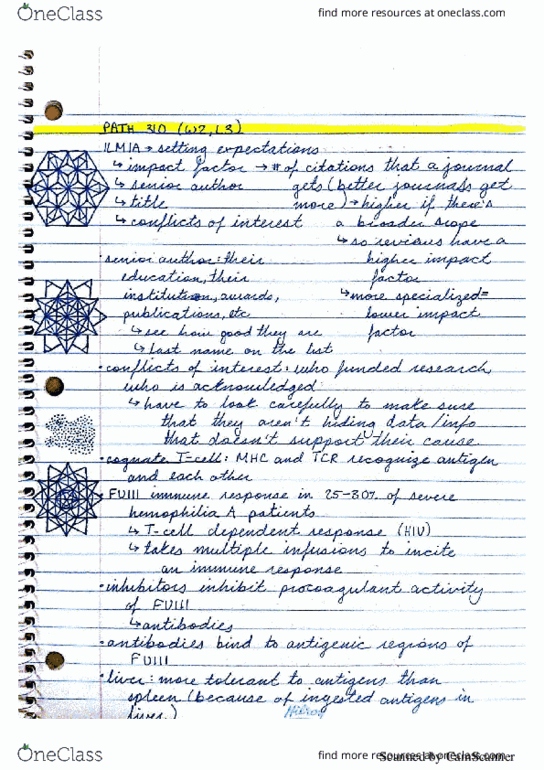 OneClass
find more resources at oneclass.com
PATH 310 (W2, L3)
ILMIA → setting expectations
↳ impact factor → # of citations that a journal
↳ senior author gets (better journals get
↳ title more) → higher if there's
↳ conflicts of interest a broader scope
↳ so reviews have a
• senior author: their higher impact
education, their factor
institution, awards, ↳ more specialized =
publications, etc lower impact
↳ see how good they are factor
↳ last name on the list
• conflicts of interest: who funded research,
who is acknowledged
↳ have to look carefully to make sure
that they aren't hiding data/info
that doesn't support their cause
• cognate T-cell: MHC and TCR recognize antigen
and each other
• FVIII immune response in 25-30% of severe
hemophilia A patients
↳ T-cell dependent response (HIV)
↳ takes multiple infusions to incite
an immune response
• inhibitors inhibit procoagulant activity
of FVIII
↳ antibodies
• antibodies bind to antigenic regions of
FVIII
• liver: more tolerant to antigens than
spleen (because of ingested antigens in
liver)
Hilroy
OneClass
find more resources at oneclass.com
Scanned by CamScanner